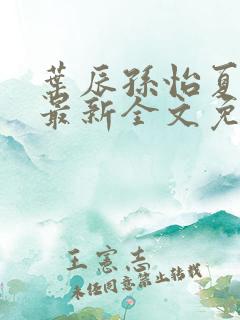 葉辰孫怡夏
最新全文免
王憲志
未经同意禁止转载